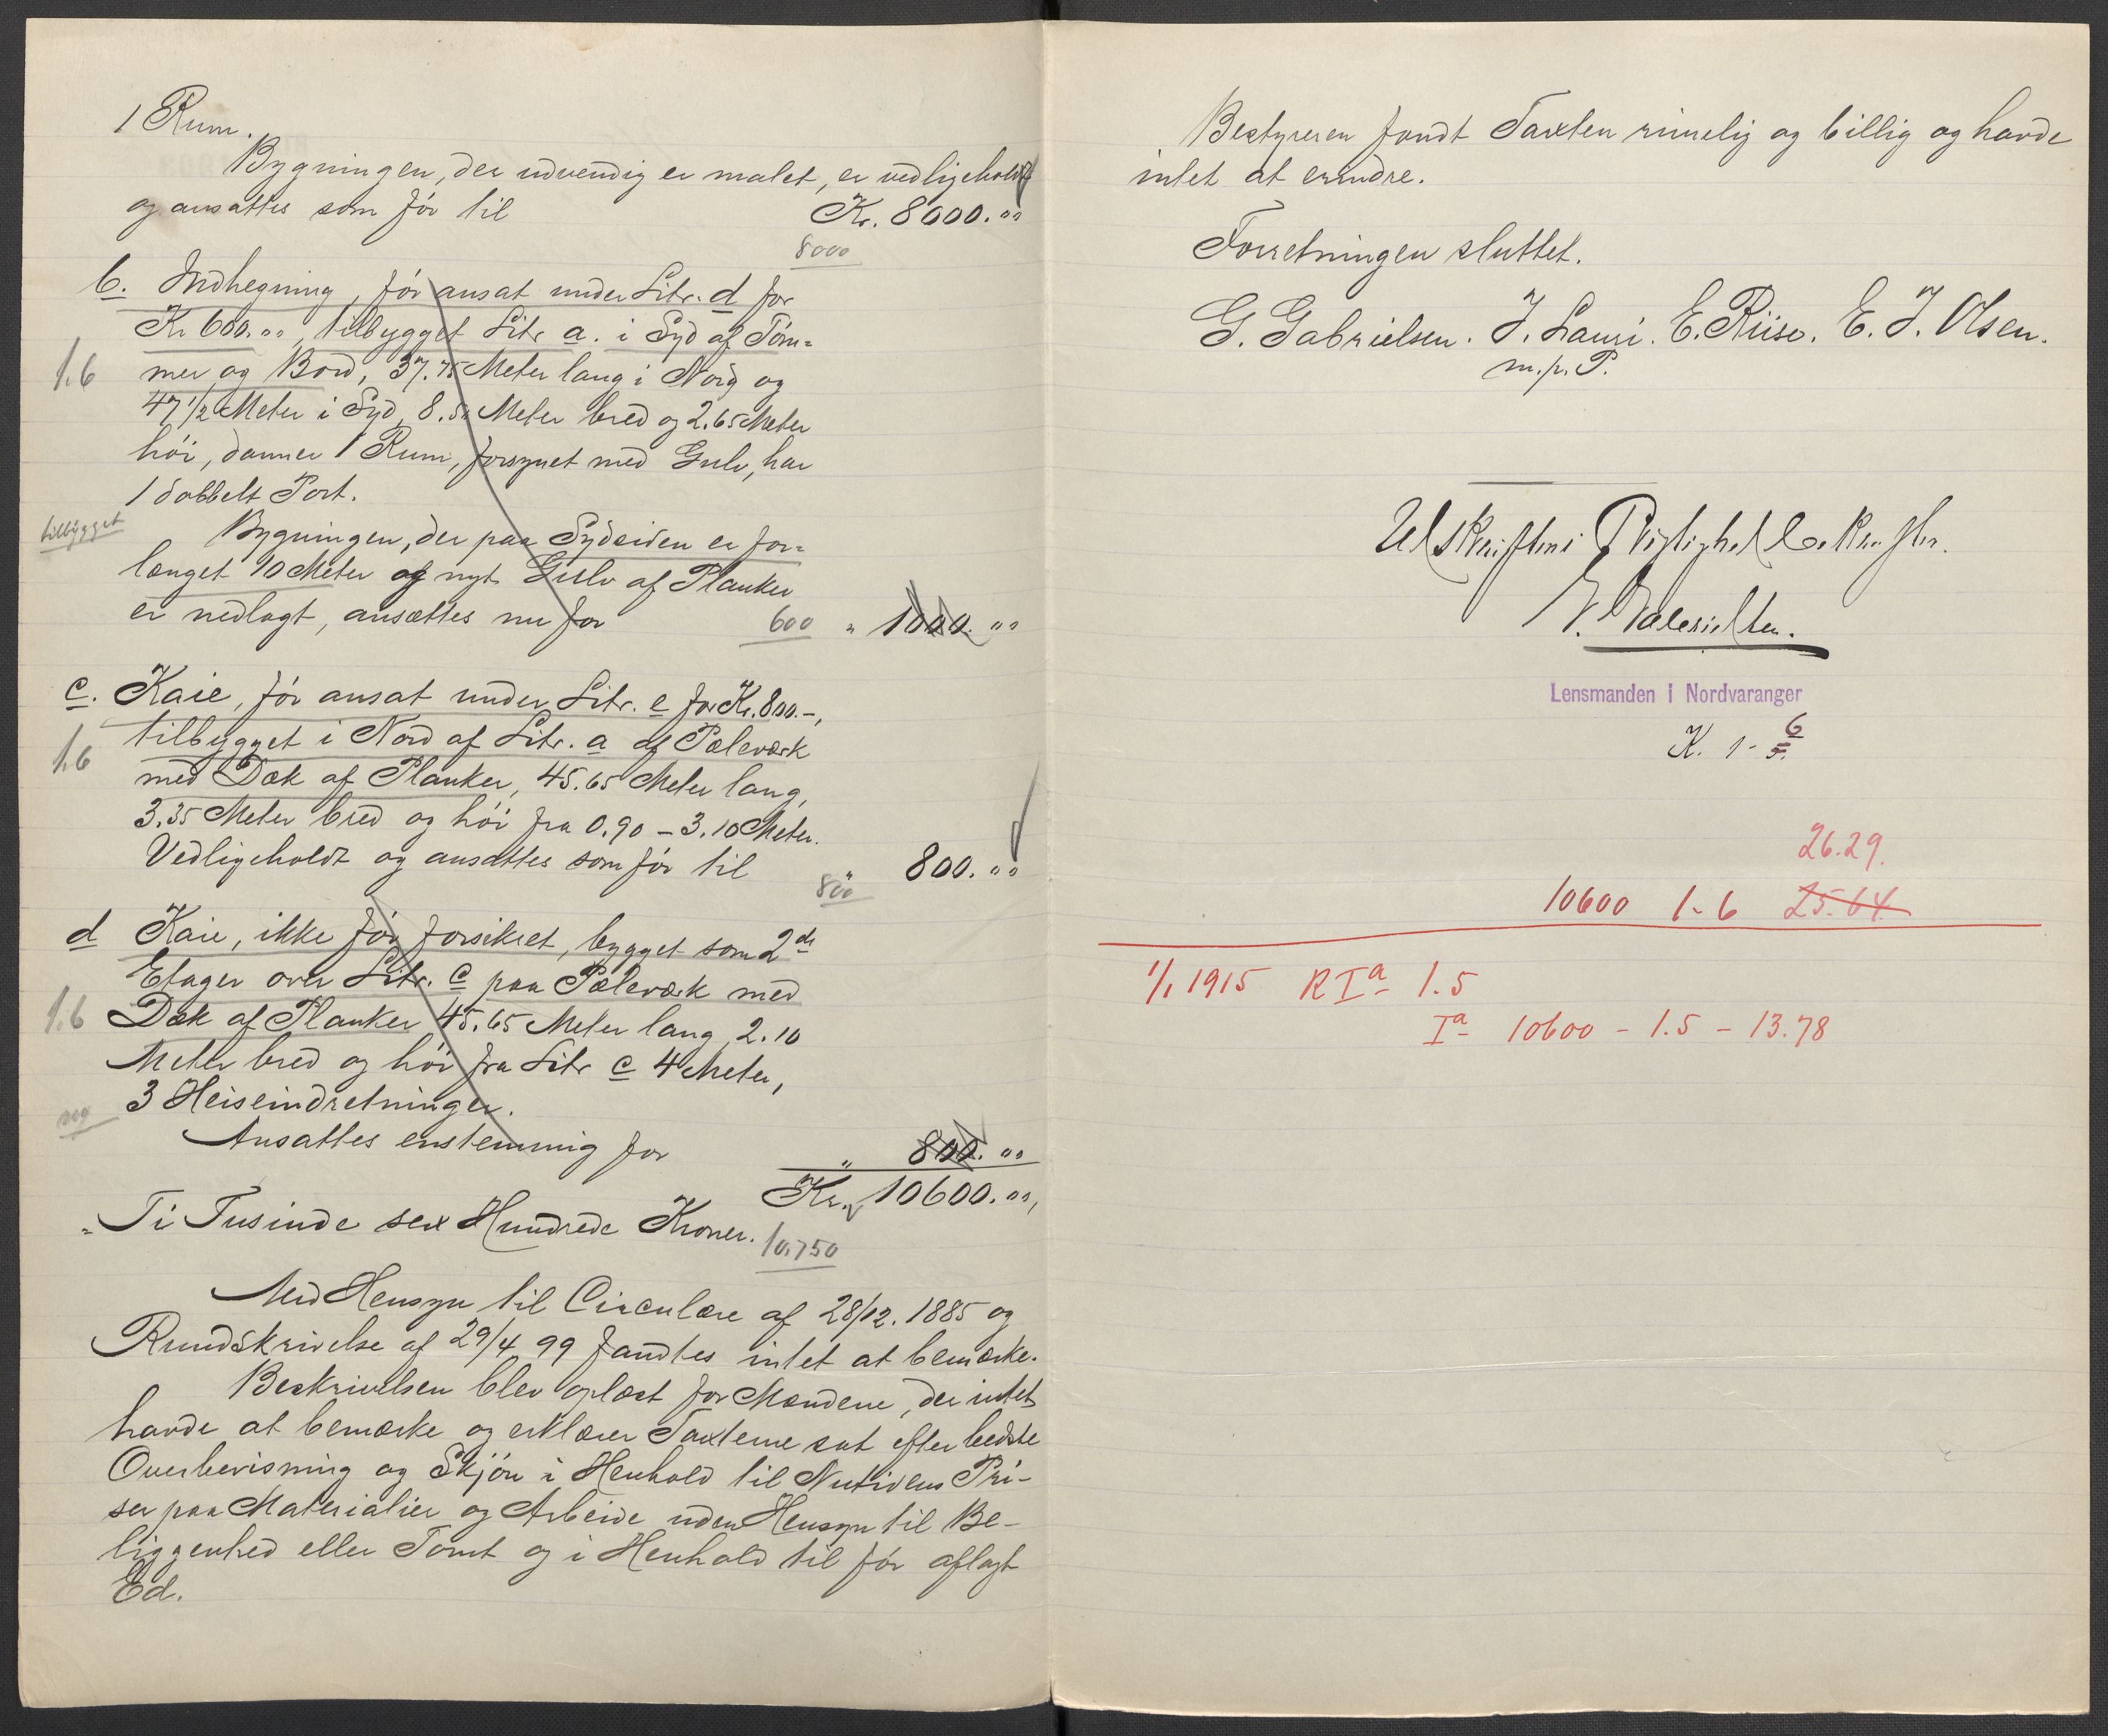 1 Rum.
Bygningen, der udvendig er malet, er vedligeholdt
og ansættes som før til Kr. 8000. "
8000
b. Indhegning, før ansat under Litr. d for
Kr 600. ", tilbygget Litr a. i Syd af Tøm=
1.6 mer og Bord, 37.75 Meter lang i Nord og
47 1/2 Meter i Syd, 8.50 Meter bred og 2.65 Meter
høi, danner 1 Rum, forsynet med Gulv, har
1 dobbelt Port.
tilbygget Bygningen, der paa Sydsiden er for=
længet 10 Meter og nyt Gulv af Planker
er nedlagt, ansættes nu for 600 " 1000. "
c. Kaie, før ansat under Litr. e for Kr. 800.-,
tilbygget i Nord af Litr. a af Pæleværk
1.6 med Dæk af Planker, 45.65 Meter lang,
3.35 Meter bred og høi fra 0.90 - 3.10 Meter.
Vedligeholdt og ansættes som før til " 800. "
800
d Kaie, ikke før forsikret, bygget som 2de
Etager over Litr. c paa Pæleværk med
1.6 Dæk af Planker 45.65 Meter lang, 2.10
Meter bred og høi fra Litr c 4 Meter,
3 Heiseindretninger.
Ansættes enstemmig for " 800. "
Kr. 10600. ",
"Ti Tusinde sex Hundrede Kroner. 10,750
Med Hensyn til Circulære af 28/12. 1885 og
Rundskrivelse af 29/4 99 fandtes intet at bemærke.
Beskrivelsen blev oplæst for Mændene, der intet
havde at bemærke og erklærer Taxterne sat efter bedste
Overbevisning og Skjøn i Henhold til Nutidens Pri-
ser paa Materialier og Arbeide uden Hensyn til Be-
liggenhed eller Tomt og i Henhold til før aflagt
Ed.
Bestyreren fandt Taxten rimelig og billig og havde
intet at erindre.
Forretningen sluttet.
G. Gabrielsen. J. Lauri. E. Riise. E. J. Olsen.
m. p. P.
Udskriftens Rigtighed bekræftes.
G. Gabrielsen.
Lensmanden i Nordvaranger
K. 1 - 6
5.
26.29.
10600 1-6 25.64
1/1 1915 R Ia 1.5
Ia 10600 - 1.5 - 13.78